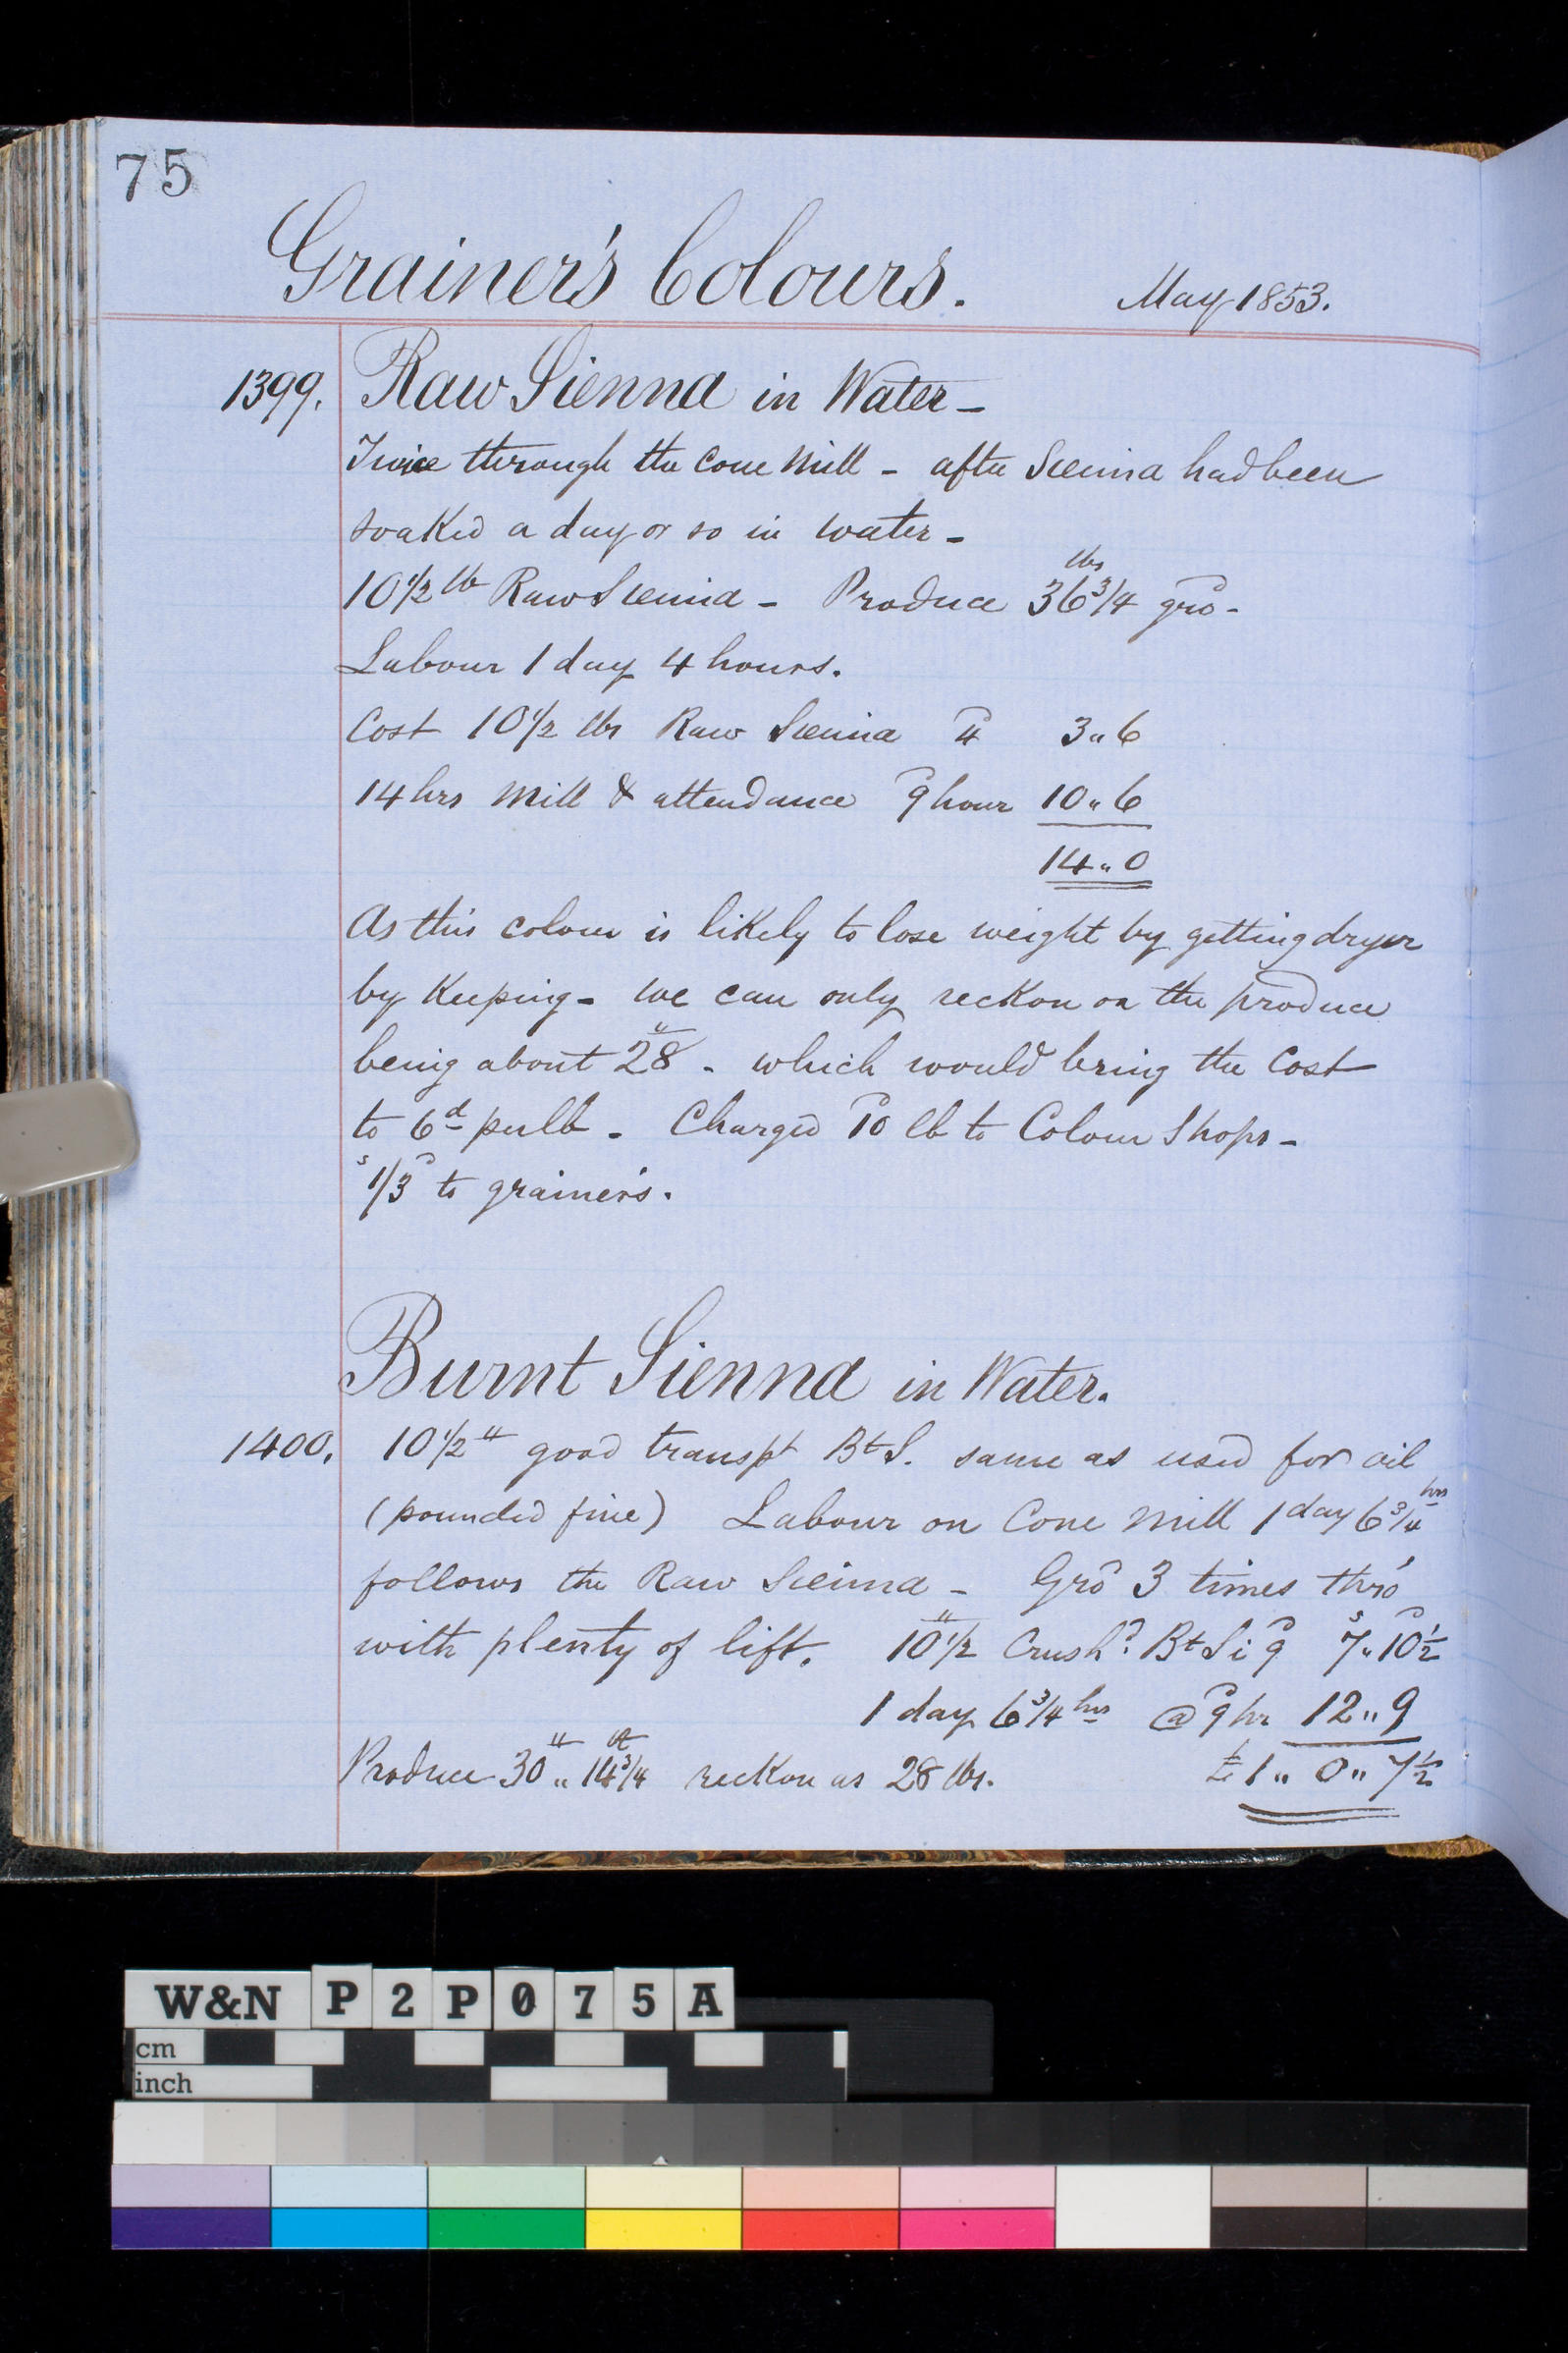 75
Grainer's Colours. May 1853.
1399. Raw Sienna in Water -
Twice through the Cone Mill - after Sienna had been
soaked a day or so in water -
10 1/2 lb Raw Sienna - Produce 36 3/4 lbs gro -
Labour 1 day 4 hours.
Cost 10 1/2 lbs Raw Sienna 4d 3 " 6
14 hrs Mill & attendance 9d hour 10 " 6
14 " 0
As this colour is likely to lose weight by getting dryer
by Keeping - we can only reckon on the produce
being about 28 lb - which would bring the Cost
to 6d per lb - Charged 10d lb to Colour Shops -
1s/3d to grainer's.
Burnt Sienna in Water.
1400. 10 1/2 lb good transpt Bt S. same as used for oil
(pounded fine) Labour on Cone Mill 1 day 6 3/4 hrs
follows the Raw Sienna - Grd 3 times thro'
with plenty of lift. 10 1/2 lb Crushd Bt Si 9d 7s " 10 1/2d
1 day 6 3/4 hrs @ 9d hr 12 " 9
Produce 30 lb " 14 3/4 reckon as 28 lbs. £1 " 0 " 7 1/2
W&N P2P075A
cm
inch